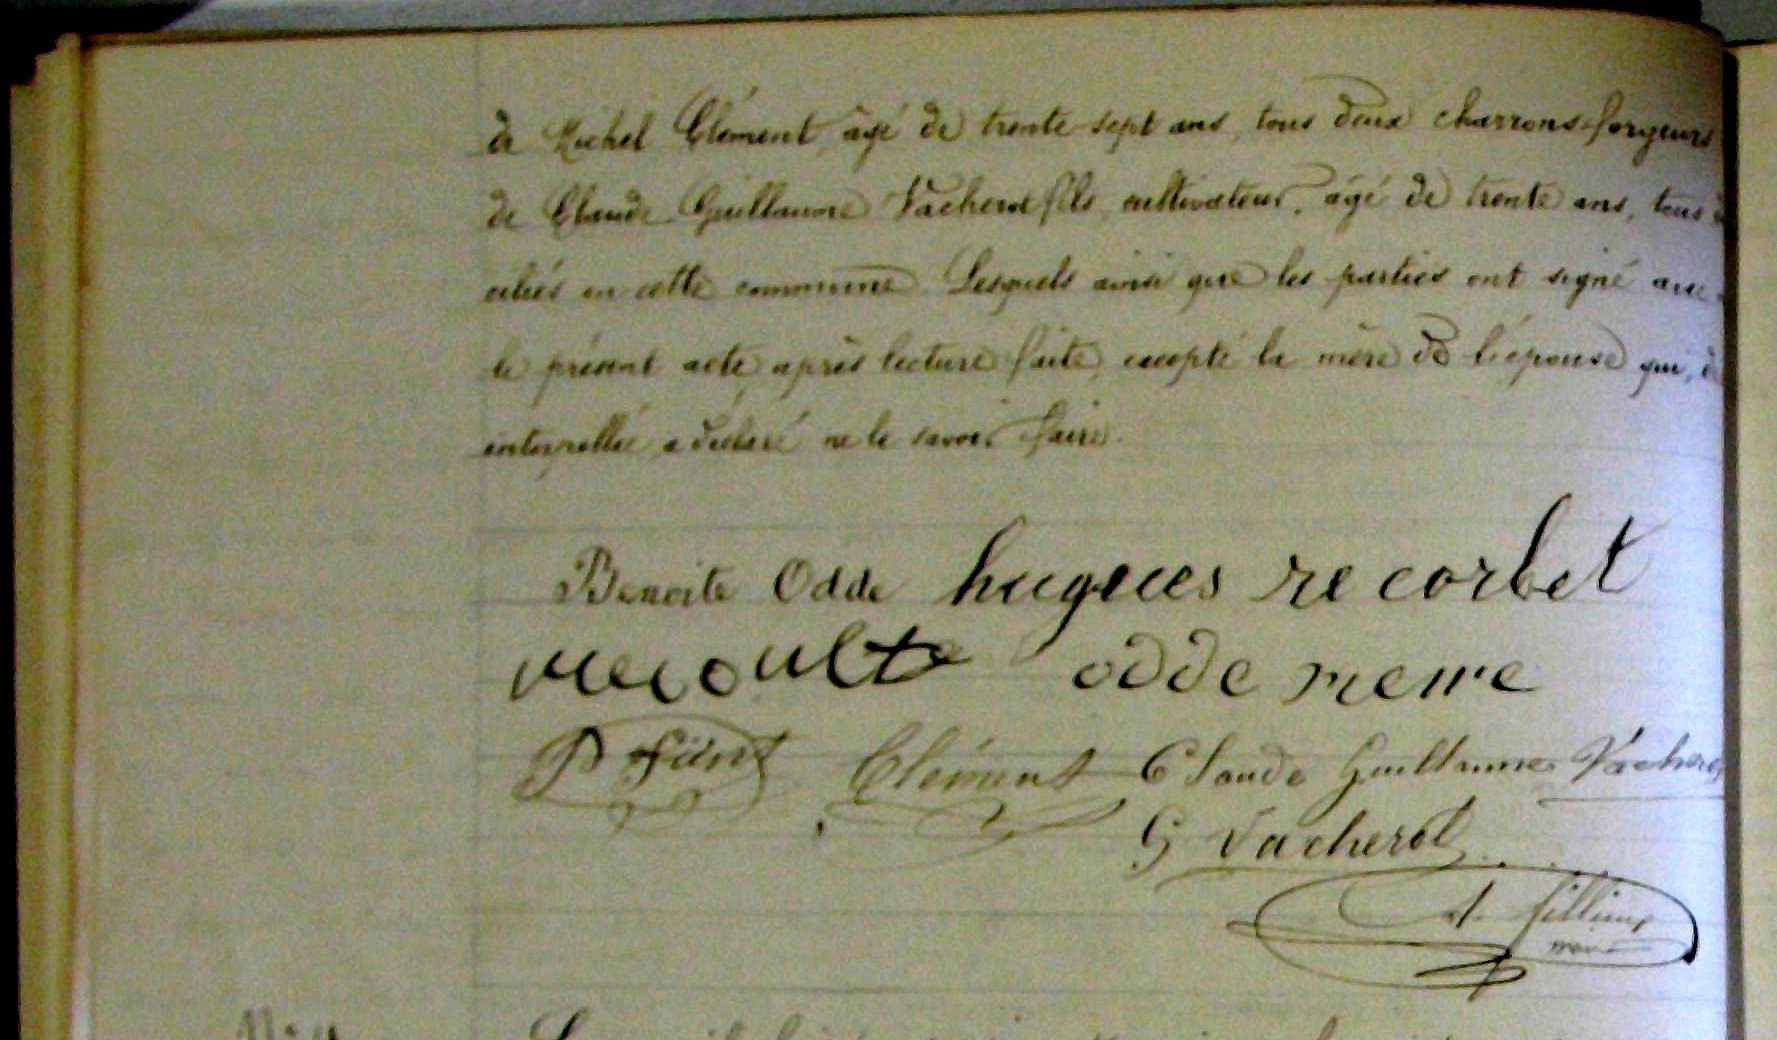 de Michel Clément, âgé de trente sept ans, tous deux charrons-forgeurs
de Claude Guillaume Vacherot fils, cultivateur, âgé de trente ans, tous
ciliés en cette commune. Lesquels ainsi que les parties ont signé avec
le présent acte après lecture faite, excepté la mère de l'épouse qui, de
interpellée a déclaré ne le savoir faire.
Benoite Odde hugues re corbet
odde
Clément Claude Guillaume Vachero
G Vacherot